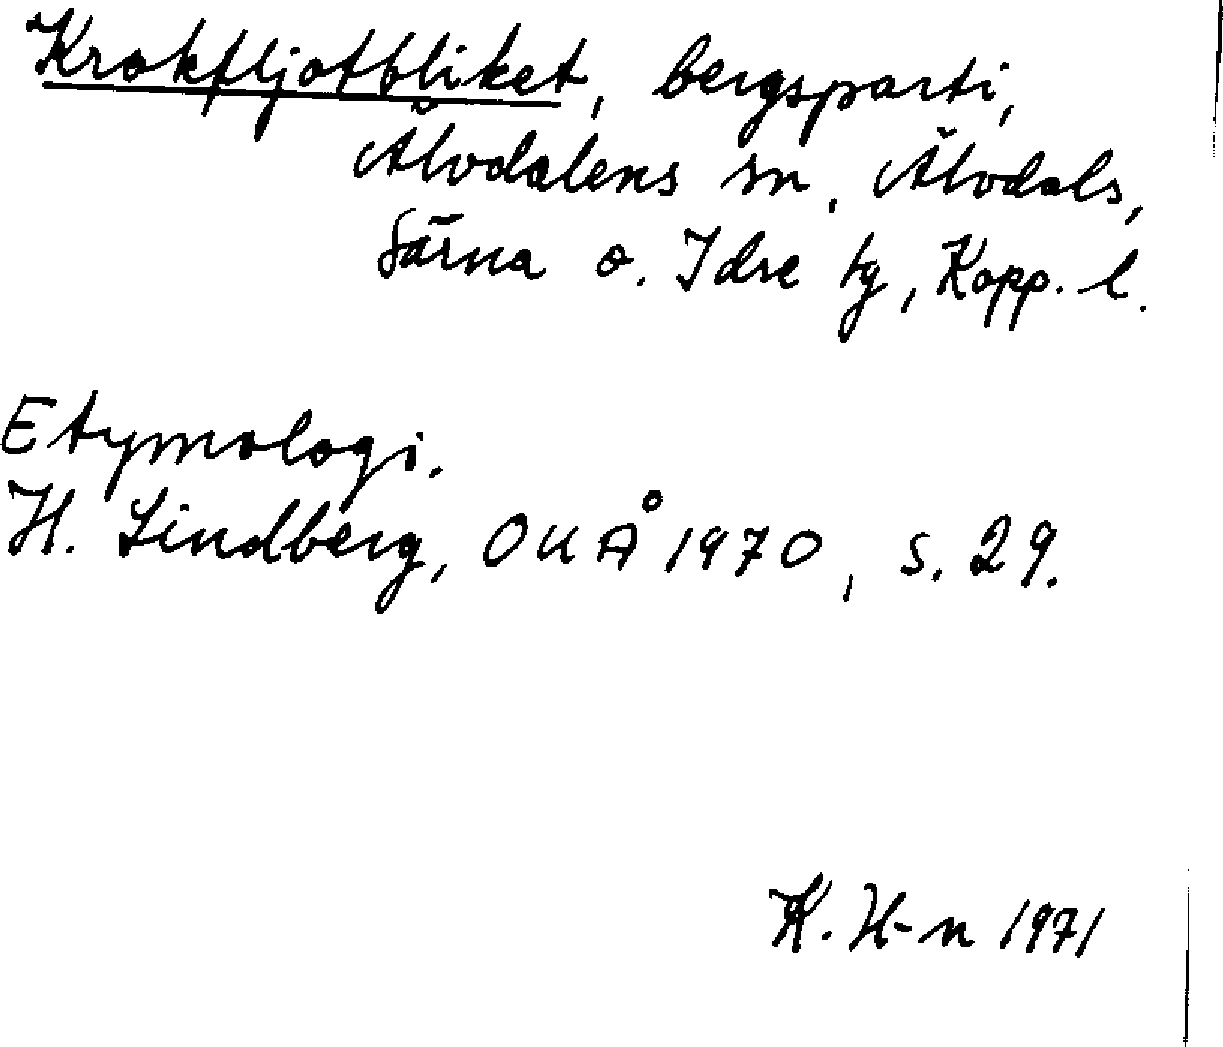 Krokfljotbliket, bergsparti,
Älvdalens sn, Älvdals,
Särna o. Idre tg, Kopp. l.
Etymologi.
H. Lindberg, OUÅ 1970, s. 29.
K. H-n 1971